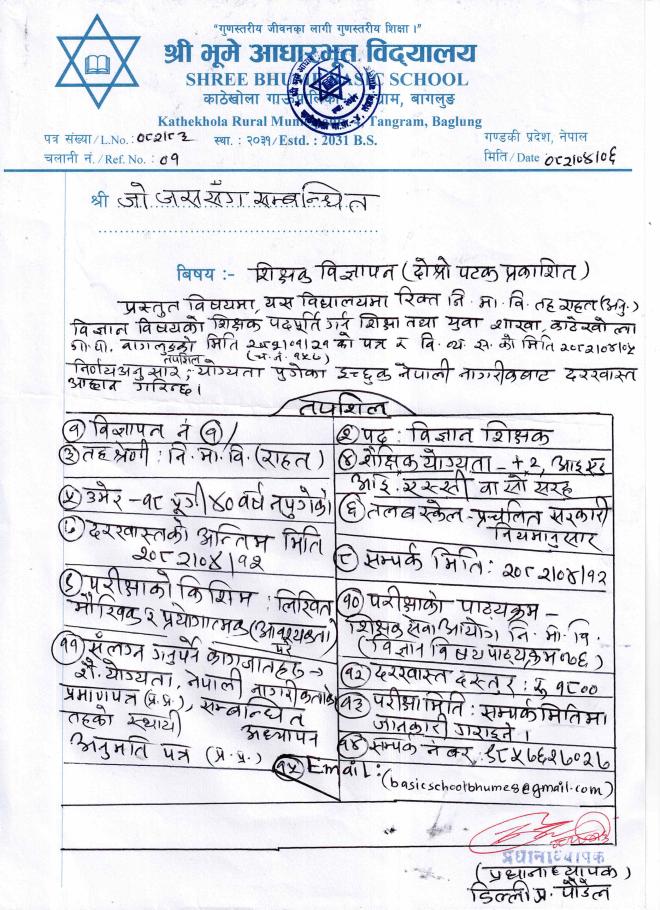 "गुणस्तरीय जीवनका लागी गुणस्तरीय शिक्षा ।"
श्री भूमे आधारभूत विद्यालय
SHREE BHUME BASIC SCHOOL
काठेखोला गाउँपालिका तंग्राम, बागलुङ
Kathekhola Rural Municipality Tangram, Baglung
पत्र संख्या/L.No.: ०८२।८३
स्था. : २०३१/Estd. : 2031 B.S.
गण्डकी प्रदेश, नेपाल
चलानी नं./Ref. No. : ०१
मिति/Date ०८२।०४।०६
श्री जो जस सँग सम्बन्धित
बिषय :- शिक्षक विज्ञापन (दोश्रो पटक प्रकाशित)
प्रस्तुत विषयमा, यस विद्यालयमा रिक्त नि. मा. वि. तह राहत (अनु.)
विज्ञान विषयको शिक्षक पदपूर्ति गर्न शिक्षा तथा युवा शाखा, काठेखोला
गा.पा. बागलुङको मिति को पत्र र वि. व्य. स. को मिति २०८२।०४।०५
(च. नं. १५८)
तपशिल
निर्णयअनुसार, योग्यता पुगेका इच्छुक नेपाली नागरीकबाट दरखास्त
आह्वान गरिन्छ।
तपशिल
१ विज्ञापन नं १/
२ पद : विज्ञान शिक्षक
३ तह श्रेणी : नि. मा. वि. (राहत)
४ शैक्षिक योग्यता - +2, आइएड
आइ. एस्सी वा सो सरह
५ उमेर - १८ पूगी ४० वर्ष नपुगेको
६ तलब स्केल - प्रचलित सरकारी
नियमानुसार
७ दरखास्तको अन्तिम मिति
२०८२।०४।१२
८ सम्पर्क मिति : २०८२।०४।१२
९ परीक्षाको किशिम : लिखित
मौखिक र प्रयोगात्मक (आवश्यकता
परे
१० परीक्षाको पाठ्यक्रम -
शिक्षक सेवा आयोग नि. मा. वि.
(विज्ञान विषय पाठ्यक्रम ०७६)
११ संलग्न गर्नुपर्ने कागजातहरु →
शै. योग्यता, नेपाली नागरीकता
प्रमाणपत्र (प्र. प्र.), सम्बन्धित
तहको स्थायी अध्यापन
अनुमति पत्र (प्र. प्र.)
१२ दरखास्त दस्तुर : रु १८००
१३ परीक्षा मिति : सम्पर्क मितिमा
जानकारी गराइने।
१४ सम्पर्क नंबर ९८५७६२७०२७
१५ Email : (basicschoolbhume8@gmail.com)
प्रधानाध्यापक
(प्रधानाध्यापक)
डिल्ली प्र. पौडेल